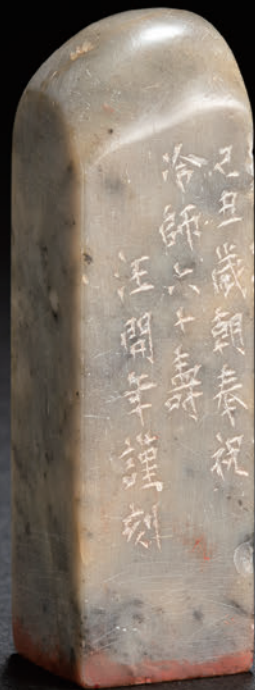 己丑歲朝奉祝
冷師六十壽
汪問年謹刻